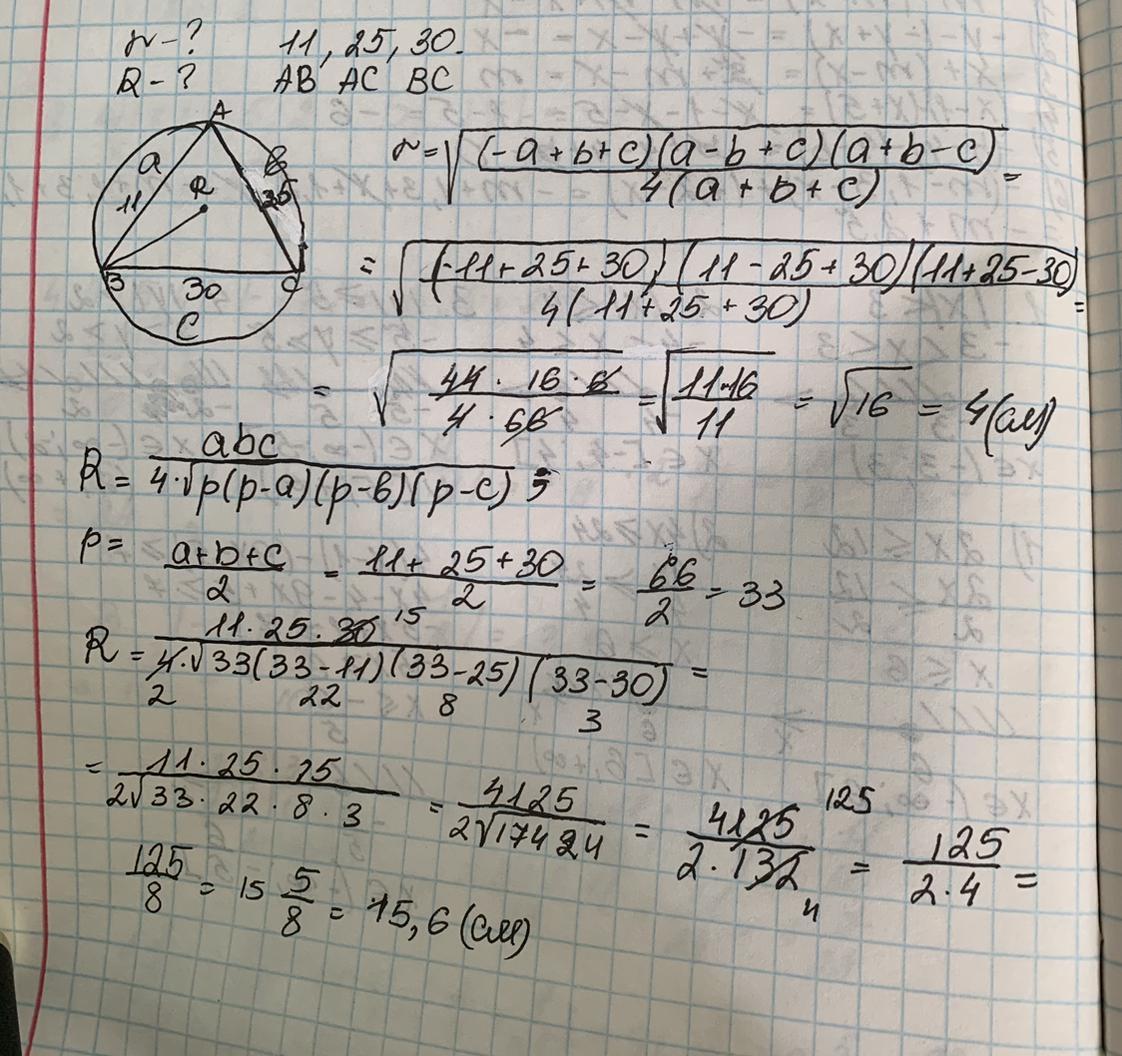 r-? 11, 25, 30.
R-? AB AC BC
A
a
в
11
R
25
B
30
C
C
r = √((-a+b+c)(a-b+c)(a+b-c) / 4(a+b+c)) =
= √((-11+25+30)(11-25+30)(11+25-30) / 4(11+25+30)) =
= √(44·16·6 / 4·66) = √(11·16 / 11) = √16 = 4(см)
R = abc / 4·√p(p-a)(p-в)(p-c) ;
p = a+b+c / 2 = 11+25+30 / 2 = 66 / 2 = 33
R = 11·25·30 15 / 4·√33(33-11)(33-25)(33-30) =
2 22 8 3
= 11·25·15 / 2√33·22·8·3 = 4125 / 2√17424 = 4125 125 / 2·132 4 = 125 / 2·4 =
125 / 8 = 15 5/8 = 15,6 (см)